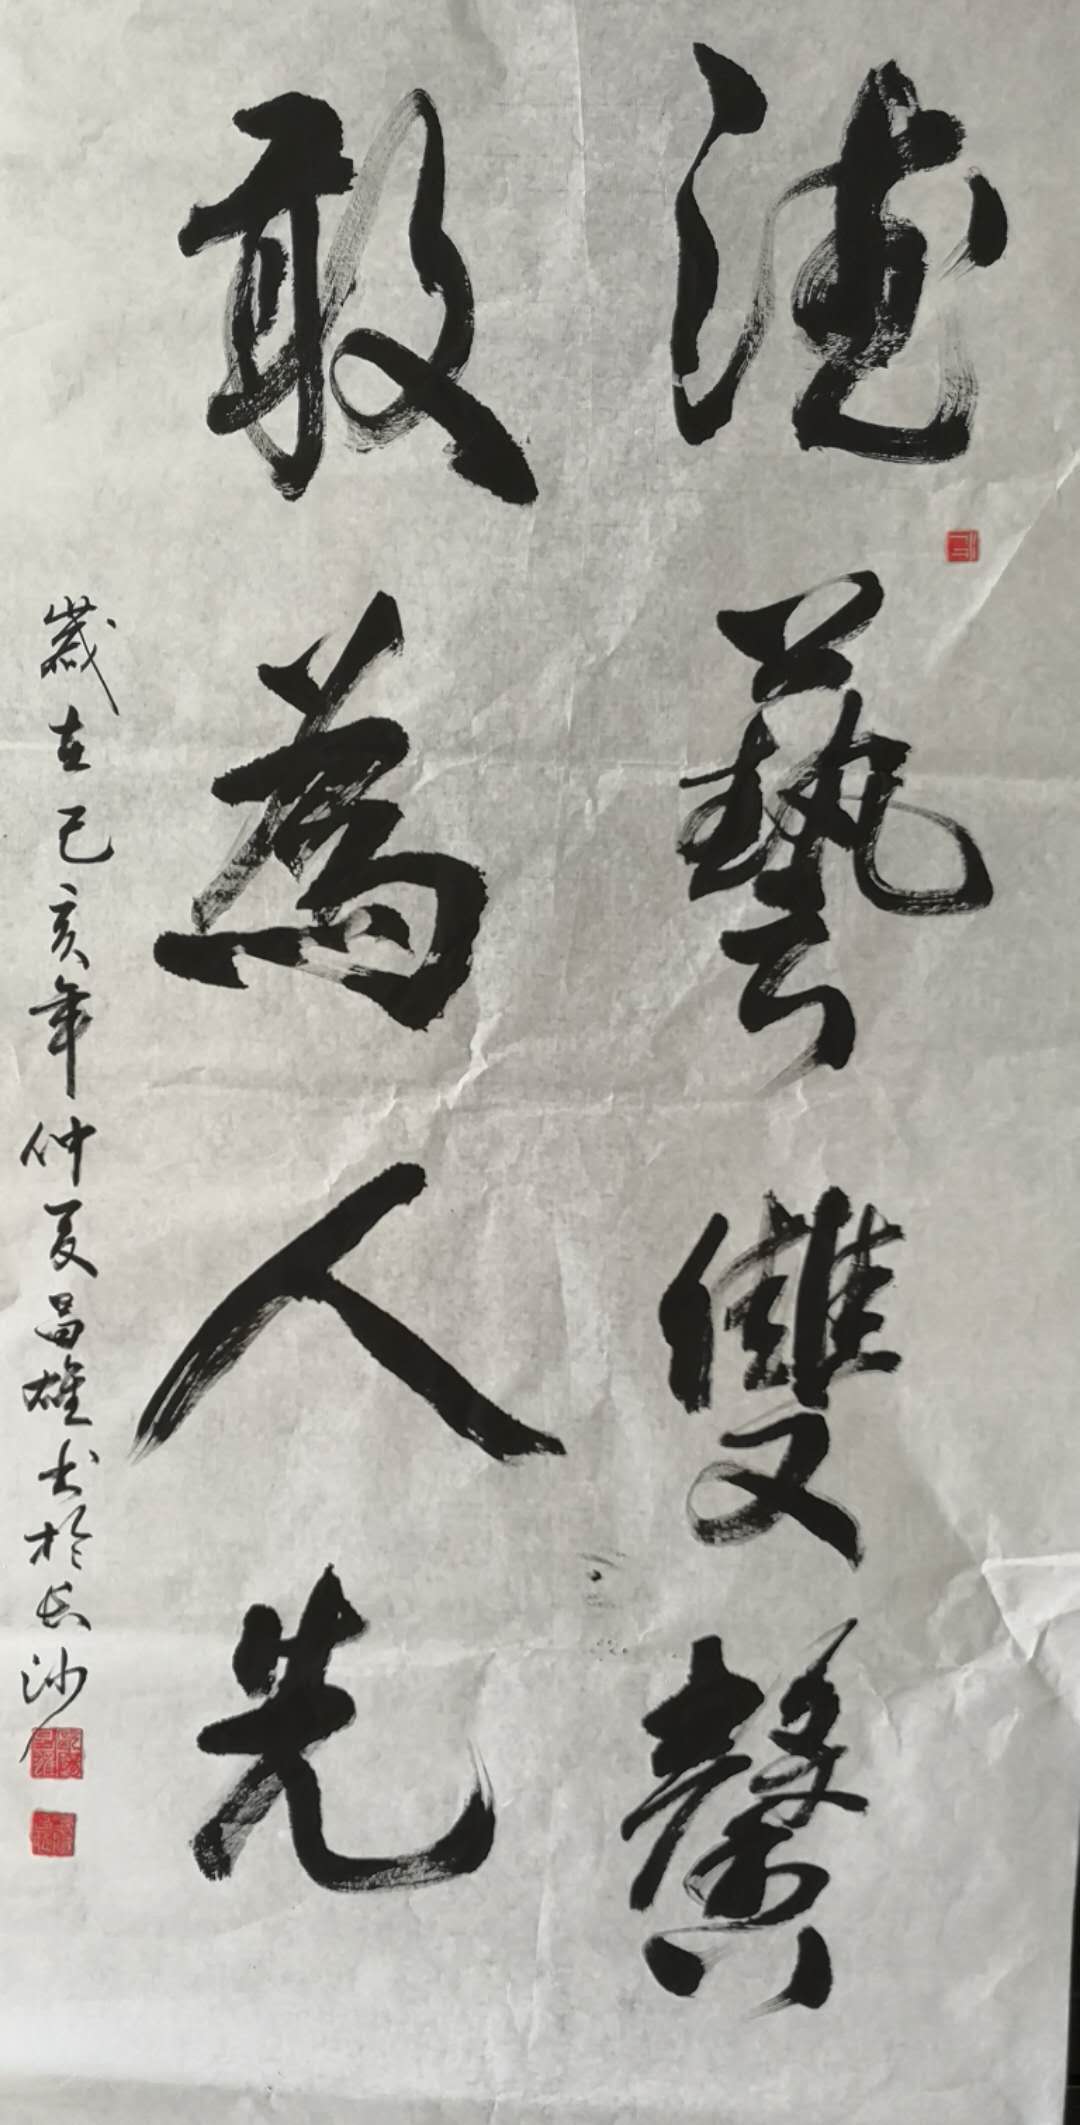 德藝雙馨
敢為人先
歲在己亥年仲夏昌雄书於长沙